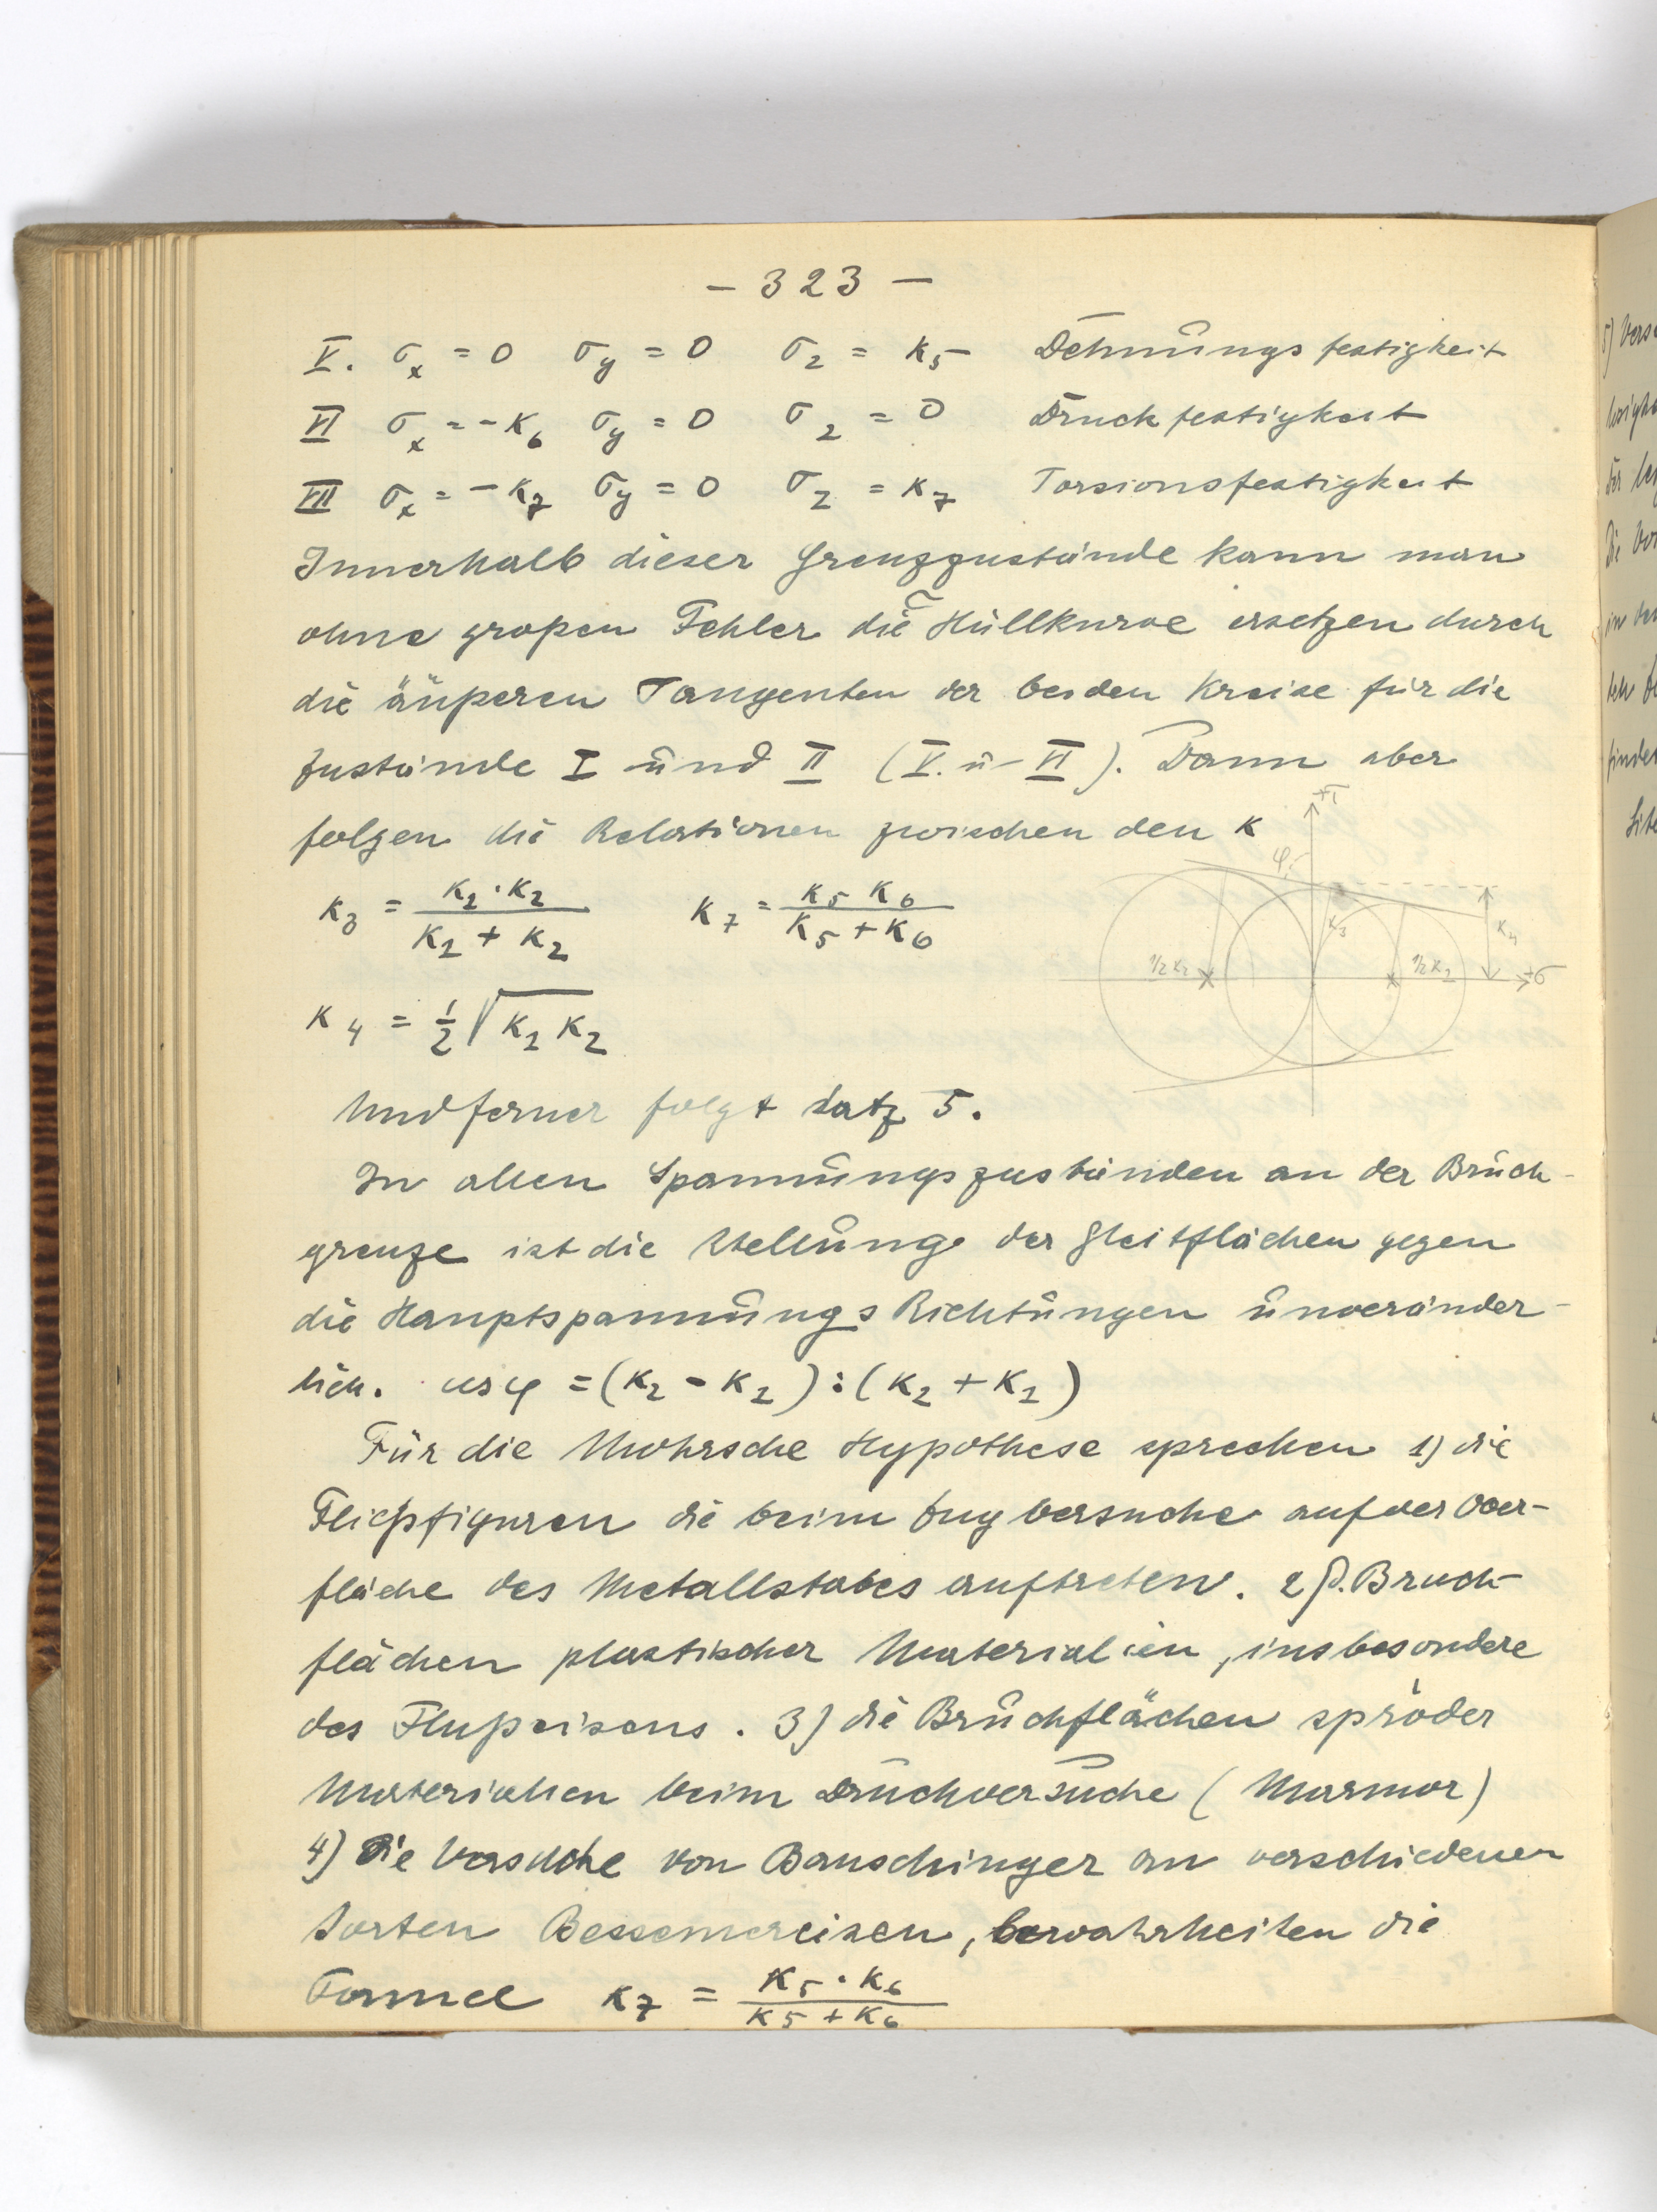 - 323 -
V. σx = 0 σy = 0 σz = K5 Dehnungsfestigkeit
VI σx = -K6 σy = 0 σz = 0 Druckfestigkeit
VII σx = -K7 σy = 0 σz = K7 Torsionsfestigkeit
Innerhalb dieser Grenzzustände kann man
ohne großen Fehler die Hüllkurve ersetzen durch
die äußeren Tangenten der beiden Kreise für die
Zustände I und II (V. u. VI). Dann aber
folgen die Relationen zwischen den K
K3 = K1·K2 / K1 + K2 K7 = K5 K6 / K5 + K6
K4 = 1/2 √K1 K2
+τ
φ
K3
K4
1/2 K2
1/2 K1
+σ
Und ferner folgt Satz 5.
In allen Spannungszuständen an der Bruch-
grenze ist die Stellung der Gleitflächen gegen
die Hauptspannungs Richtungen unveränder-
lich. cos φ = (K2 - K1) : (K2 + K1)
Für die Mohrsche Hypothese sprechen 1) die
Fließfiguren die beim Zugversuche auf der Ober-
fläche des Metallstabes auftreten. 2) d. Bruch-
flächen plastischer Materialien, insbesondere
des Flußeisens. 3) die Bruchflächen spröder
Materialien beim Druckversuche (Marmor)
4) Die Versuche von Bauschinger an verschiedenen
Sorten Bessemereisen, bewahrheiten die
Formel K7 = K5·K6 / K5 + K6